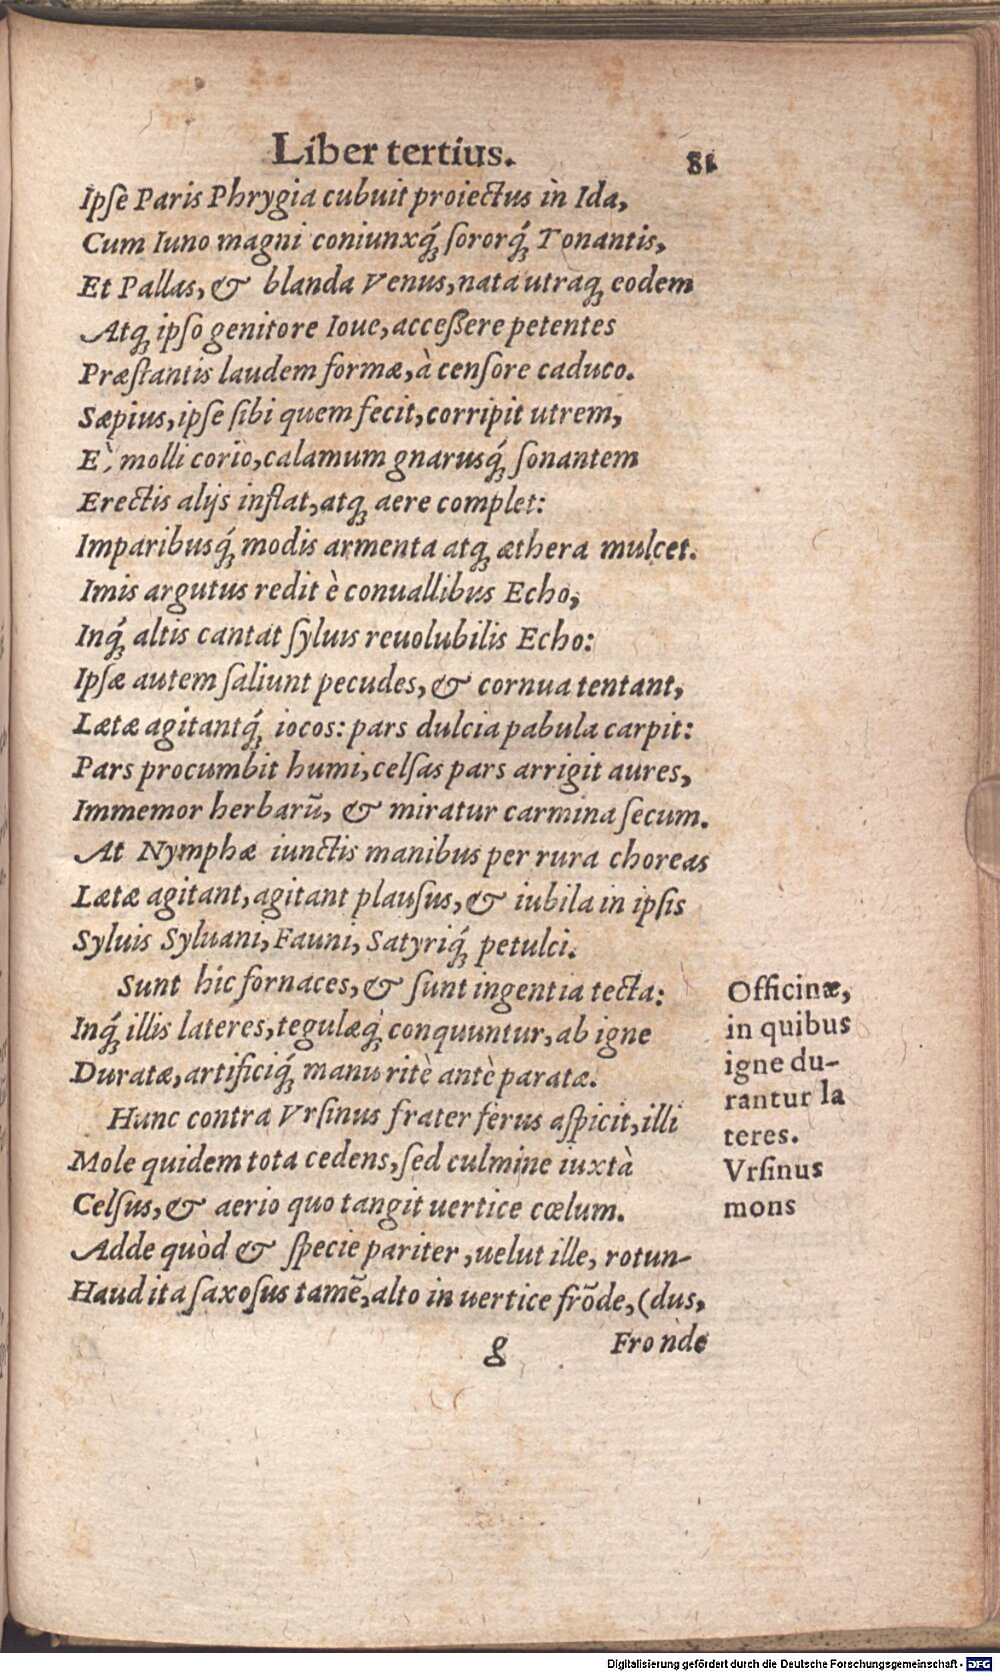 Liber tertius. 81
Ipſe Paris Phrygia cubuit proiectus in Ida,
Cum Iuno magni coniunxq́; ſororq́; Tonantis,
Et Pallas, & blanda Venus, nata utraq; eodem
Atq; ipſo genitore Ioue, acceßere petentes
Præſtantis laudem formæ, à cenſore caduco.
Sæpius, ipſe ſibi quem fecit, corripit utrem,
E`, molli corio, calamum gnarusq́; ſonantem
Erectis alijs inflat, atq; aere complet:
Imparibusq́; modis armenta atq; æthera mulcet.
Imis argutus redit è conuallibus Echo,
Inq́; altis cantat ſyluis reuolubilis Echo:
Ipſæ autem ſaliunt pecudes, & cornua tentant,
Lætæ agitantq́; iocos: pars dulcia pabula carpit:
Pars procumbit humi, celſas pars arrigit aures,
Immemor herbarū, & miratur carmina ſecum.
At Nymphæ iunctis manibus per rura choreas
Lætæ agitant, agitant plauſus, & iubila in ipſis
Syluis Syluani, Fauni, Satyriq́; petulci.
Sunt hic fornaces, & ſunt ingentia tecta:
Inq́; illis lateres, tegulæq́; conquuntur, ab igne
Duratæ, artificiq́; manu ritè antè paratæ.
Hunc contra Vrſinus frater ferus aſpicit, illi
Mole quidem tota cedens, ſed culmine iuxtà
Celſus, & aerio quo tangit uertice cœlum.
Adde quòd & ſpecie pariter, uelut ille, rotun-
Haud ita ſaxoſus tamē, alto in uertice frōde, (dus,
g Fronde
Officinæ,
in quibus
igne du-
rantur la
teres.
Vrſinus
mons
Digitalisierung gefördert durch die Deutsche Forschungsgemeinschaft - DFG